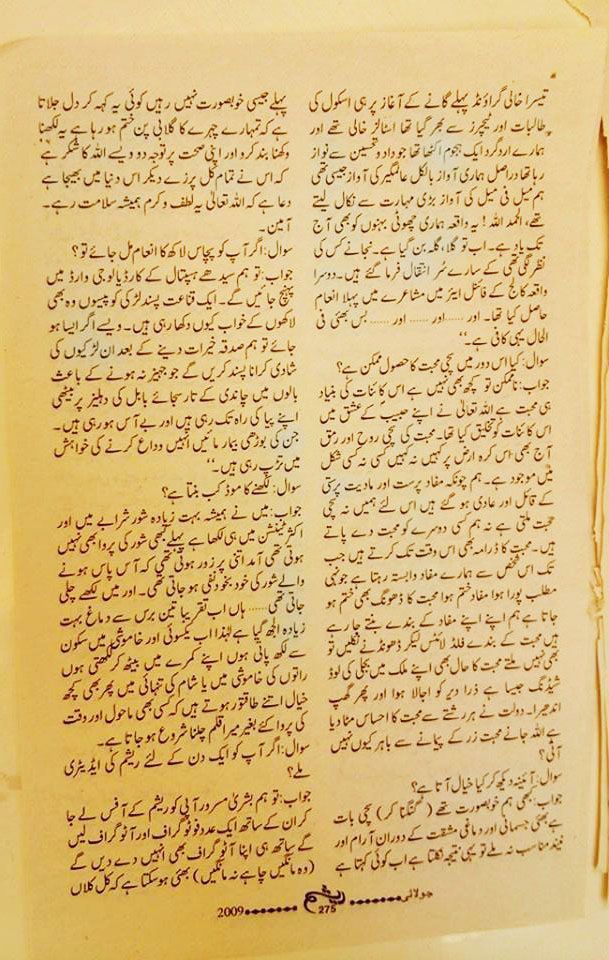 تیسرا خالی گراؤنڈ پہلے گانے کے آغاز پر ہی اسکول کی
طالبات اور ٹیچرز سے بھر گیا تھا اسٹالز خالی تھے اور
ہمارے اردگرد ایک ہجوم اکٹھا تھا جو داد و تحسین سے نواز
رہا تھا دراصل ہماری آواز بالکل عالمگیر کی آواز جیسی تھی
ہم میل فی میل کی آواز بڑی مہارت سے نکال لیتے
تھے، الحمد اللہ! یہ واقعہ ہماری چھوٹی بہنوں کو بھی آج
تک یاد ہے۔ اب تو گلا، گلہ بن گیا ہے۔ نجانے کس کی
نظر لگی تھی کے سارے سُر انتقال فرما گئے ہیں۔ دوسرا
واقعہ کالج کے فائنل ایئر میں مشاعرے میں پہلا انعام
حاصل کیا تھا۔ اور ...... اور ...... اور ...... بس بھئی فی
الحال یہی کافی ہے۔''
سوال: کیا اس دور میں سچی محبت کا حصول ممکن ہے؟
جواب: ناممکن تو کچھ بھی نہیں ہے اس کائنات کی بنیاد
ہی محبت ہے اللہ تعالیٰ نے اپنے حبیب کے عشق میں
اس کائنات کو تخلیق کیا تھا۔ محبت کی سچی روح اور رمق
آج بھی اس کرہ ارض پر کہیں نہ کہیں کسی نہ کسی شکل
میں موجود ہے۔ ہم چونکہ مفاد پرست اور مادیت پرستی
کے قائل اور عادی ہو گئے ہیں اس لئے ہمیں نہ سچی
محبت ملتی ہے نہ ہم کسی دوسرے کو محبت دے پاتے
ہیں۔ محبت کا ڈرامہ بھی اس وقت تک کرتے ہیں جب
تک اس شخص سے ہمارے مفاد وابستہ رہتا ہے جونہی
مطلب پورا ہوا مفاد ختم ہوا محبت کا ڈھونگ بھی ختم ہو
جاتا ہے ہم اپنے اپنے مفاد کے بندے بنتے جا رہے
ہیں محبت کے بندے فلڈ لائنس لیکر ڈھونڈنے نکلیں تو
بھی نہیں ملتے محبت کا حال بھی اپنے ملک میں بجلی کی لوڈ
شیڈنگ جیسا ہے ذرا دیر کو اجالا ہوا اور پھر گھپ
اندھیرا۔ دولت نے ہر رشتے سے محبت کا احساس مٹا دیا
ہے اللہ جانے محبت زر کے پیمانے سے باہر کیوں نہیں
آتی؟
سوال: آئینہ دیکھ کر کیا خیال آتا ہے؟
جواب: کبھی ہم خوبصورت تھے (گنگنا کر) سچی بات
ہے بھئی جسمانی اور دماغی مشقت کے دوران آرام اور
نیند مناسب نہ ملے تو یہی نتیجہ نکلتا ہے اب کوئی کہتا ہے
پہلے جیسی خوبصورت نہیں رہیں کوئی یہ کہہ کر دل جلاتا
ہے کہ تمہارے چہرے کا گلابی پن ختم ہو رہا ہے یہ لکھنا
وکھنا بند کرو اور اپنی صحت پر توجہ دو ویسے اللہ کا شکر ہے
کہ اس نے تمام کل پرزے دیکر اس دنیا میں بھیجا ہے
دعا ہے کہ اللہ تعالیٰ یہ لطف و کرم ہمیشہ سلامت رہے۔
آمین۔
سوال: اگر آپ کو پچاس لاکھ کا انعام مل جائے تو؟
جواب: تو ہم سیدھے ہسپتال کے کارڈیالوجی وارڈ میں
پہنچ جائیں گے۔ ایک قناعت پسند لڑکی کو پیسوں وہ بھی
لاکھوں کے خواب کیوں دکھا رہی ہیں۔ ویسے اگر ایسا ہو
جائے تو ہم صدقہ خیرات دینے کے بعد ان لڑکیوں کی
شادی کرانا پسند کریں گے جو جہیز نہ ہونے کے باعث
بالوں میں چاندی کے تار سجائے بابل کی دہلیز پر بیٹھی
اپنے پیا کی راہ تک رہی ہیں اور بے آس ہو رہی ہیں۔
جن کی بوڑھی بیمار مائیں انہیں وداع کرنے کی خواہش
میں تڑپ رہی ہیں۔''
سوال: لکھنے کا موڈ کب بنتا ہے؟
جواب: میں نے ہمیشہ بہت زیادہ شور شرابے میں اور
اکثر ٹینشن میں ہی لکھا ہے پہلے کبھی شور کی پروا بھی نہیں
ہوتی تھی آمد اتنی پر زور ہوتی تھی کہ آس پاس ہونے
والے شور کی خود بخود نفی ہو جاتی تھی۔ اور میں لکھے چلی
جاتی تھی ...... ہاں اب تقریبا تین برس سے دماغ بہت
زیادہ الجھ گیا ہے لہٰذا اب یکسوئی اور خاموشی میں سکون
سے لکھ پاتی ہوں اپنے کمرے میں بیٹھ کر لکھتی ہوں
راتوں کی خاموشی میں یا شام کی تنہائی میں پھر بھی کچھ
خیال اتنے طاقتور ہوتے ہیں کہ کسی بھی ماحول اور وقت
کی پروا کئے بغیر میرا قلم چلنا شروع ہو جاتا ہے۔
سوال: اگر آپ کو ایک دن کے لئے ریشم کی ایڈیٹری
ملے؟
جواب: تو ہم بشریٰ مسرور آپی کو ریشم کے آفس لے جا
کر ان کے ساتھ ایک عدد فوٹو گراف اور آٹو گراف لیں
گے ساتھ ہی اپنا آٹو گراف بھی انہیں دے دیں گے
(وہ مانگیں چاہے نہ مانگیں) بھئی ہو سکتا ہے کہ کل کلاں
جولائی ریشم 275 2009